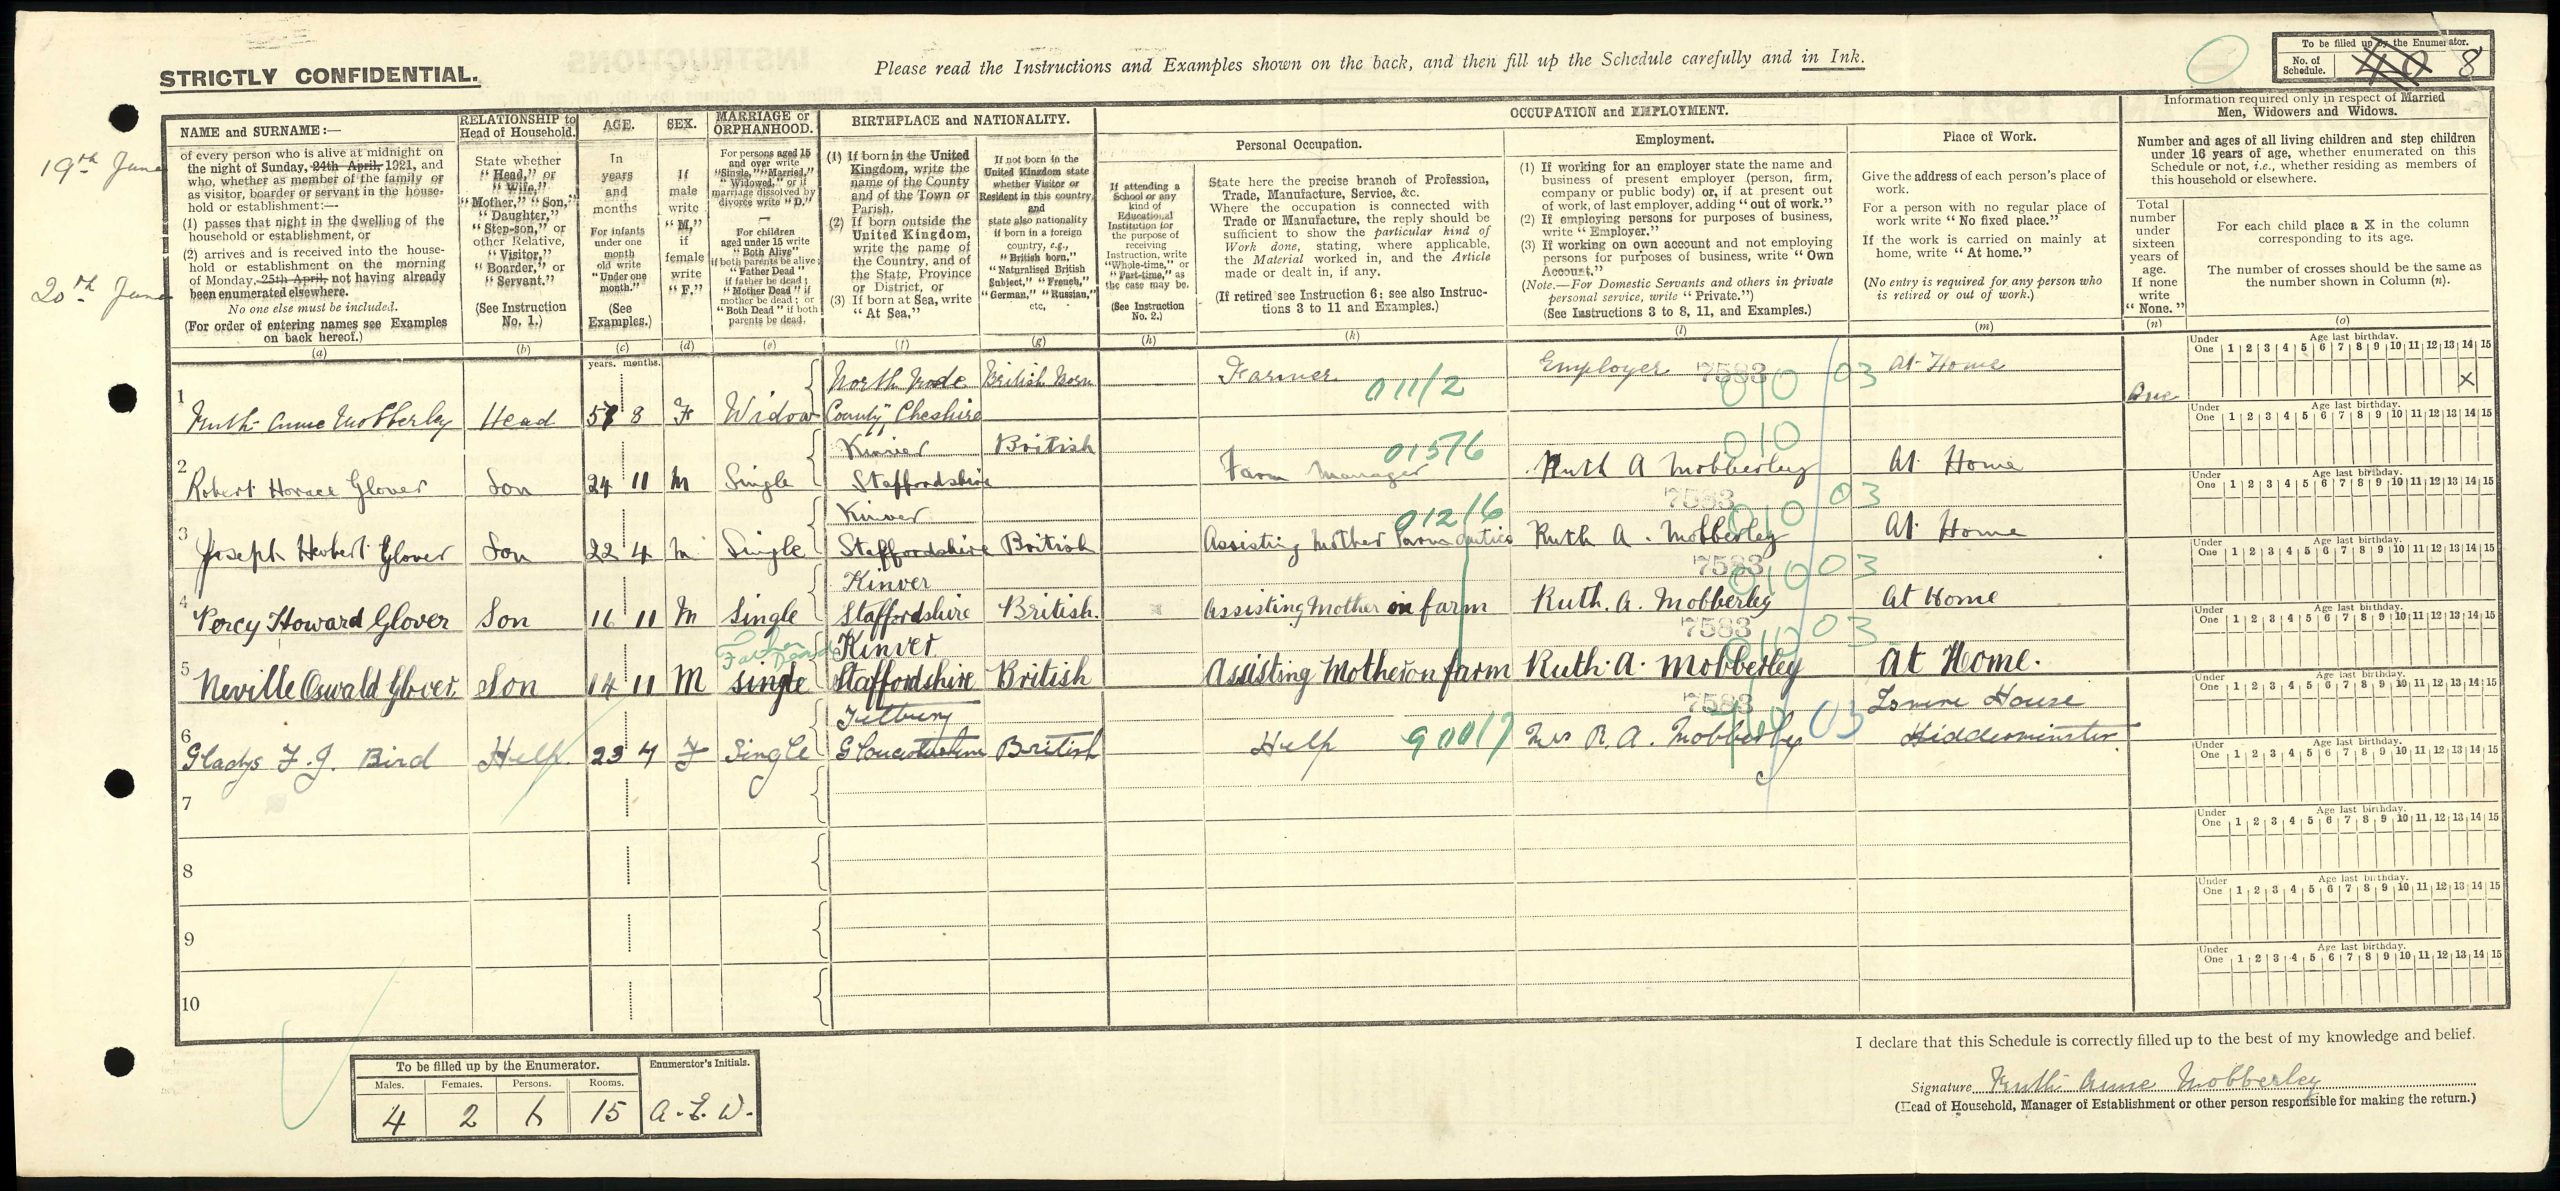 STRICTLY CONFIDENTIAL.
Please read the Instructions and Examples shown on the back, and then fill up the Schedule carefully and in Ink.
To be filled up by the Enumerator.
No. of Schedule. 8
19th June
20th June
NAME and SURNAME:—
of every person who is alive at midnight on
the night of Sunday, 24th April, 1921, and
who, whether as member of the family or
as visitor, boarder or servant in the house-
hold or establishment:—
(1) passes that night in the dwelling of the
household or establishment, or
(2) arrives and is received into the house-
hold or establishment on the morning
of Monday, 25th April, not having already
been enumerated elsewhere.
No one else must be included.
(For order of entering names see Examples
on back hereof.)
(a)
RELATIONSHIP to
Head of Household.
State whether
"Head," or
"Wife,"
"Mother," "Son,"
"Daughter,"
"Step-son," or
other Relative,
"Visitor,"
"Boarder," or
"Servant."
(See Instruction
No. 1.)
(b)
AGE.
In
years
and
months
For infants
under one
month
old write
"Under one
month."
(See
Examples.)
(c)
years. months.
SEX.
If
male
write
"M,"
if
female
write
"F."
(d)
MARRIAGE or
ORPHANHOOD.
For persons aged 15
and over write
"Single," "Married,"
"Widowed," or if
marriage dissolved by
divorce write "D."
For children
aged under 15 write
"Both Alive"
if both parents be alive;
"Father Dead"
if father be dead;
"Mother Dead" if
mother be dead; or
"Both Dead" if both
parents be dead.
(e)
BIRTHPLACE and NATIONALITY.
(1) If born in the United
Kingdom, write the
name of the County
and of the Town or
Parish.
(2) If born outside the
United Kingdom,
write the name of
the Country, and of
the State, Province
or District, or
(3) If born at Sea, write
"At Sea."
(f)
If not born in the
United Kingdom state
whether Visitor or
Resident in this country,
and
state also nationality
if born in a foreign
country, e.g.,
"British born,"
"Naturalised British
Subject," "French,"
"German," "Russian,"
etc,
(g)
OCCUPATION and EMPLOYMENT.
If attending a
School or any
kind of
Educational
Institution for
the purpose of
receiving
Instruction, write
"Whole-time," or
"Part-time," as
the case may be.
(See Instruction
No. 2.)
(h)
Personal Occupation.
State here the precise branch of Profession,
Trade, Manufacture, Service, &c.
Where the occupation is connected with
Trade or Manufacture, the reply should be
sufficient to show the particular kind of
Work done, stating, where applicable,
the Material worked in, and the Article
made or dealt in, if any.
(If retired see Instruction 6: see also Instruc-
tions 3 to 11 and Examples.)
(k)
Employment.
(1) If working for an employer state the name and
business of present employer (person, firm,
company or public body) or, if at present out
of work, of last employer, adding "out of work."
(2) If employing persons for purposes of business,
write "Employer."
(3) If working on own account and not employing
persons for purposes of business, write "Own
Account."
(Note.—For Domestic Servants and others in private
personal service, write "Private.")
(See Instructions 3 to 8, 11, and Examples.)
(l)
Place of Work.
Give the address of each person's place of
work.
For a person with no regular place of
work write "No fixed place."
If the work is carried on mainly at
home, write "At home."
(No entry is required for any person who
is retired or out of work.)
(m)
Information required only in respect of Married
Men, Widowers and Widows.
Number and ages of all living children and step children
under 16 years of age, whether enumerated on this
Schedule or not, i.e., whether residing as members of
this household or elsewhere.
Total
number
under
sixteen
years of
age.
If none
write
"None."
(n)
For each child place a X in the column
corresponding to its age.
The number of crosses should be the same as
the number shown in Column (n).
(o)
Age last birthday.
Under One 1 2 3 4 5 6 7 8 9 10 11 12 13 14 15
1 Ruth Anne Mobberley Head 8 F Widow North Rode County, Cheshire British Born Farmer 011/2 Employer 7583 010 03 At Home One X
Age last birthday.
Under One 1 2 3 4 5 6 7 8 9 10 11 12 13 14 15
2 Robert Horace Glover Son 24 11 M Single Kinver Staffordshire British Farm Manager 015/6 Ruth A Mobberley 010 At Home
Age last birthday.
Under One 1 2 3 4 5 6 7 8 9 10 11 12 13 14 15
3 Joseph Herbert Glover Son 22 4 M Single Kinver Staffordshire British Assisting Mother Farm duties 012/6 Ruth A. Mobberley 7583 010 03 At Home
Age last birthday.
Under One 1 2 3 4 5 6 7 8 9 10 11 12 13 14 15
4 Percy Howard Glover Son 16 11 M Single Kinver Staffordshire British. Assisting Mother on farm Ruth. A. Mobberley 7583 010 03 At Home
Age last birthday.
Under One 1 2 3 4 5 6 7 8 9 10 11 12 13 14 15
5 Neville Oswald Glover. Son 14 11 M Father Dead single Kinver Staffordshire British Assisting Mother on farm Ruth. A. Mobberley 7583 010 03 At Home.
Age last birthday.
Under One 1 2 3 4 5 6 7 8 9 10 11 12 13 14 15
6 Gladys F. J. Bird Help. 23 4 F Single Tetbury Gloucestershire British Help 900/7 Mrs R. A. Mobberley 7583 03 Ismere House Kidderminster
Age last birthday.
Under One 1 2 3 4 5 6 7 8 9 10 11 12 13 14 15
7
Age last birthday.
Under One 1 2 3 4 5 6 7 8 9 10 11 12 13 14 15
8
Age last birthday.
Under One 1 2 3 4 5 6 7 8 9 10 11 12 13 14 15
9
Age last birthday.
Under One 1 2 3 4 5 6 7 8 9 10 11 12 13 14 15
10
To be filled up by the Enumerator.
Males. Females. Persons. Rooms.
4 2 6 15
Enumerator's Initials.
A. E. W.
I declare that this Schedule is correctly filled up to the best of my knowledge and belief.
Signature Ruth Anne Mobberley
(Head of Household, Manager of Establishment or other person responsible for making the return.)